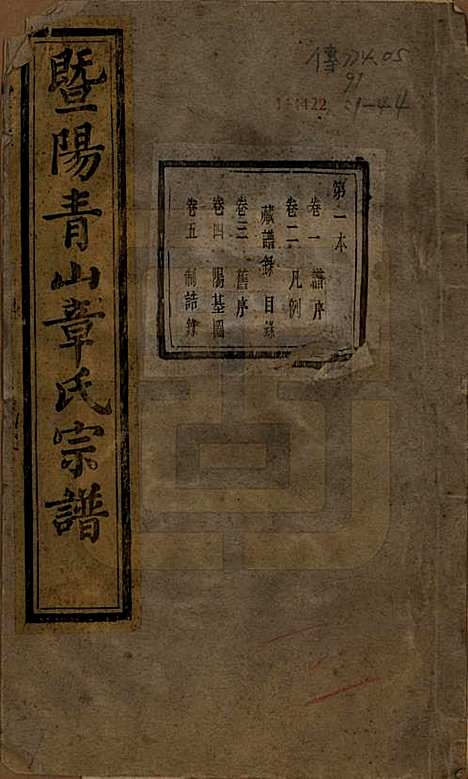 暨陽青山章氏宗譜
傳774.05
91
:1-44
第一本
卷一 譜序
卷二 凡例
藏譜錄 目錄
卷三 舊序
卷四 陽基圖
卷五 制誥錄